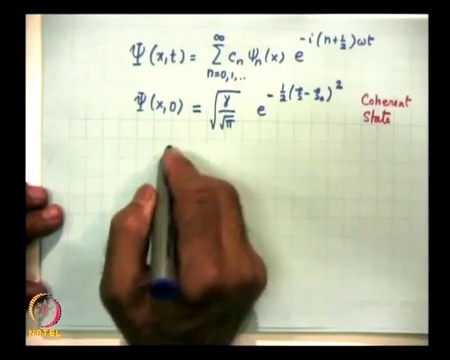 Ψ(x,t) = ∑_{n=0,1,..}^{∞} c_n ψ_n(x) e^{-i(n+½)ωt}
Ψ(x,0) = √(γ/√π) e^{-½(ξ-ξ₀)²} Coherent
State
NPTEL